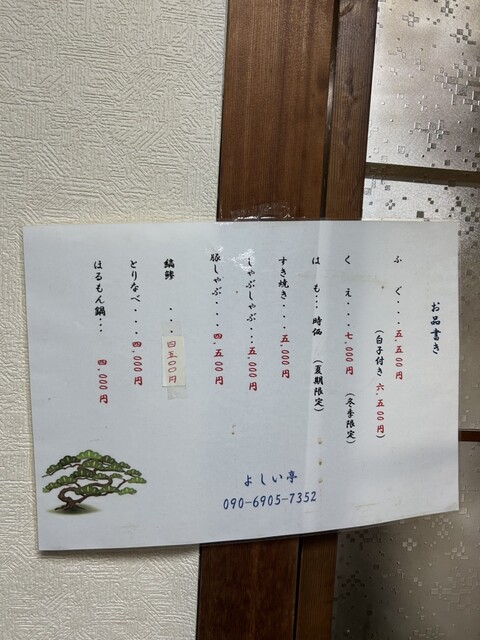 お品書き
ふぐ・・・・五,五〇〇円
(白子付き 六,五〇〇円)
くえ・・・・七,〇〇〇円 (冬季限定)
はも・・・時価 (夏期限定)
すき焼き・・・五,〇〇〇円
しゃぶしゃぶ・・・五,〇〇〇円
豚しゃぶ・・・・四,五〇〇円
縞鯵・・・・四五〇〇円
とりなべ・・・・四,〇〇〇円
ほるもん鍋・・・四,〇〇〇円
よしい亭
090-6905-7352